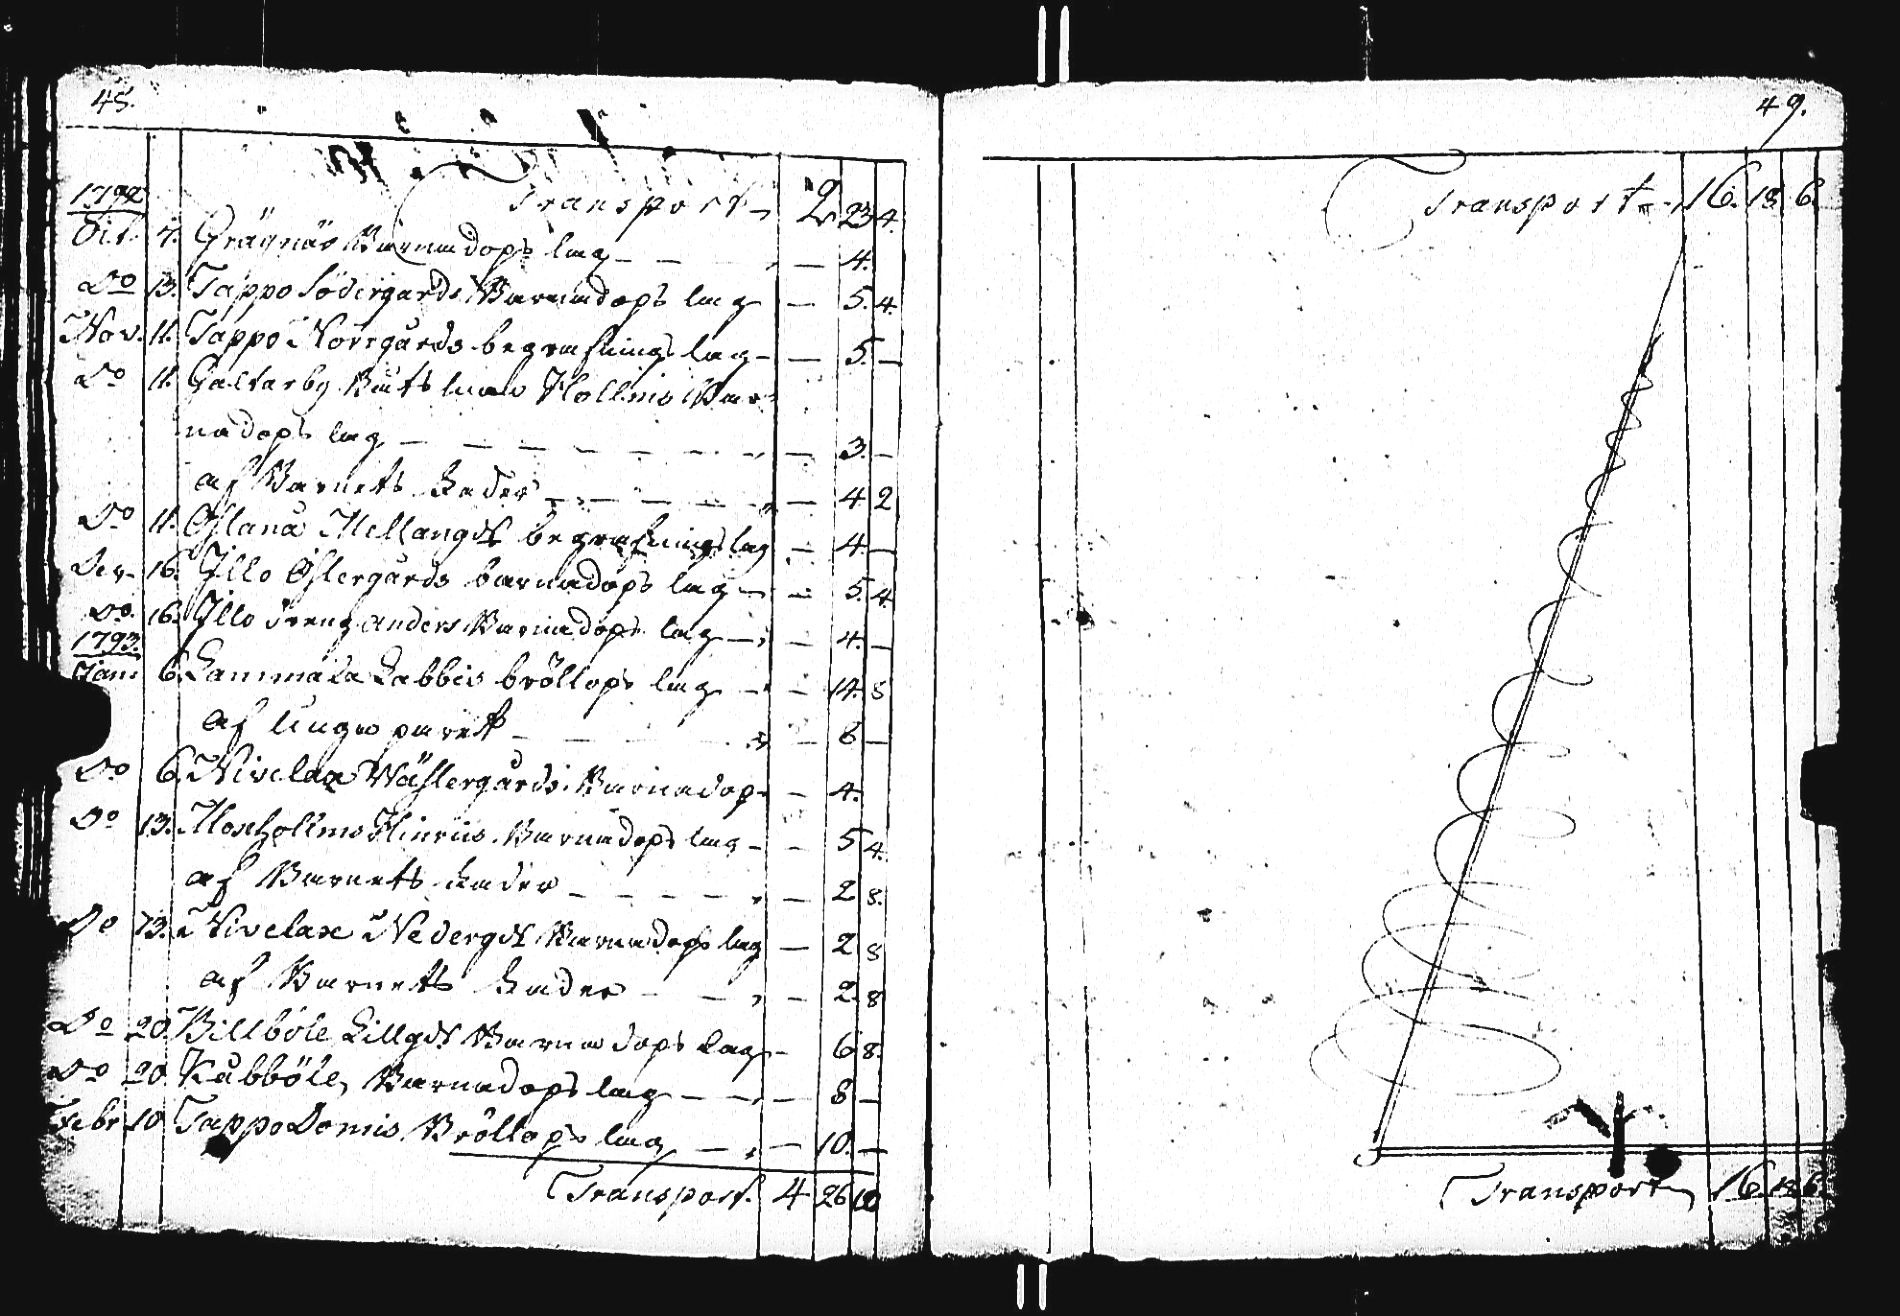 48.
1792 Transport 2 23 4.
Oct. 7. Grägnäs Barnadops lag — 4.
Do 13. Tappo Södergårds Barnadops lag — 5. 4.
Nov. 11. Tappo Norrgårds begrafnings lag — 5. —
Do 11. Galtarby Båtsman Hollmis Bar-
nadops lag — 3. —
af Barnets Fader — 4 2
Do 11. Öflana Mellangds begrafnings lag — 4. —
Dec. 16. Illo Östergårds barnadops lag — 5. 4.
Do. 16. Illo Dreng Anders Barnadops lag — 4. —
1793.
Janu 6. Lammala Labbis bröllops lag — 14. 8
af Unga paret — 8 —
Do 6. Nivelax Västergårds Barnadop — 4.
Do 13. Mosholms Hinrics Barnadops lag — 5 4.
af Barnets Fader — 2 8.
Do 13. Nivelax Nedergds Barnadops lag — 2 8
af Barnets Fader — 2 8
Do 20. Billböle Lillgds Barnadops lag — 6 8.
Do 20. Kubböle, Barnadops lag — 8 —
Febr 10 Tappo Domis Bröllops lag — 10. —
Transport. 4 26 10
49.
Transport 16. 18. 6.
Transport 16. 18. 6.